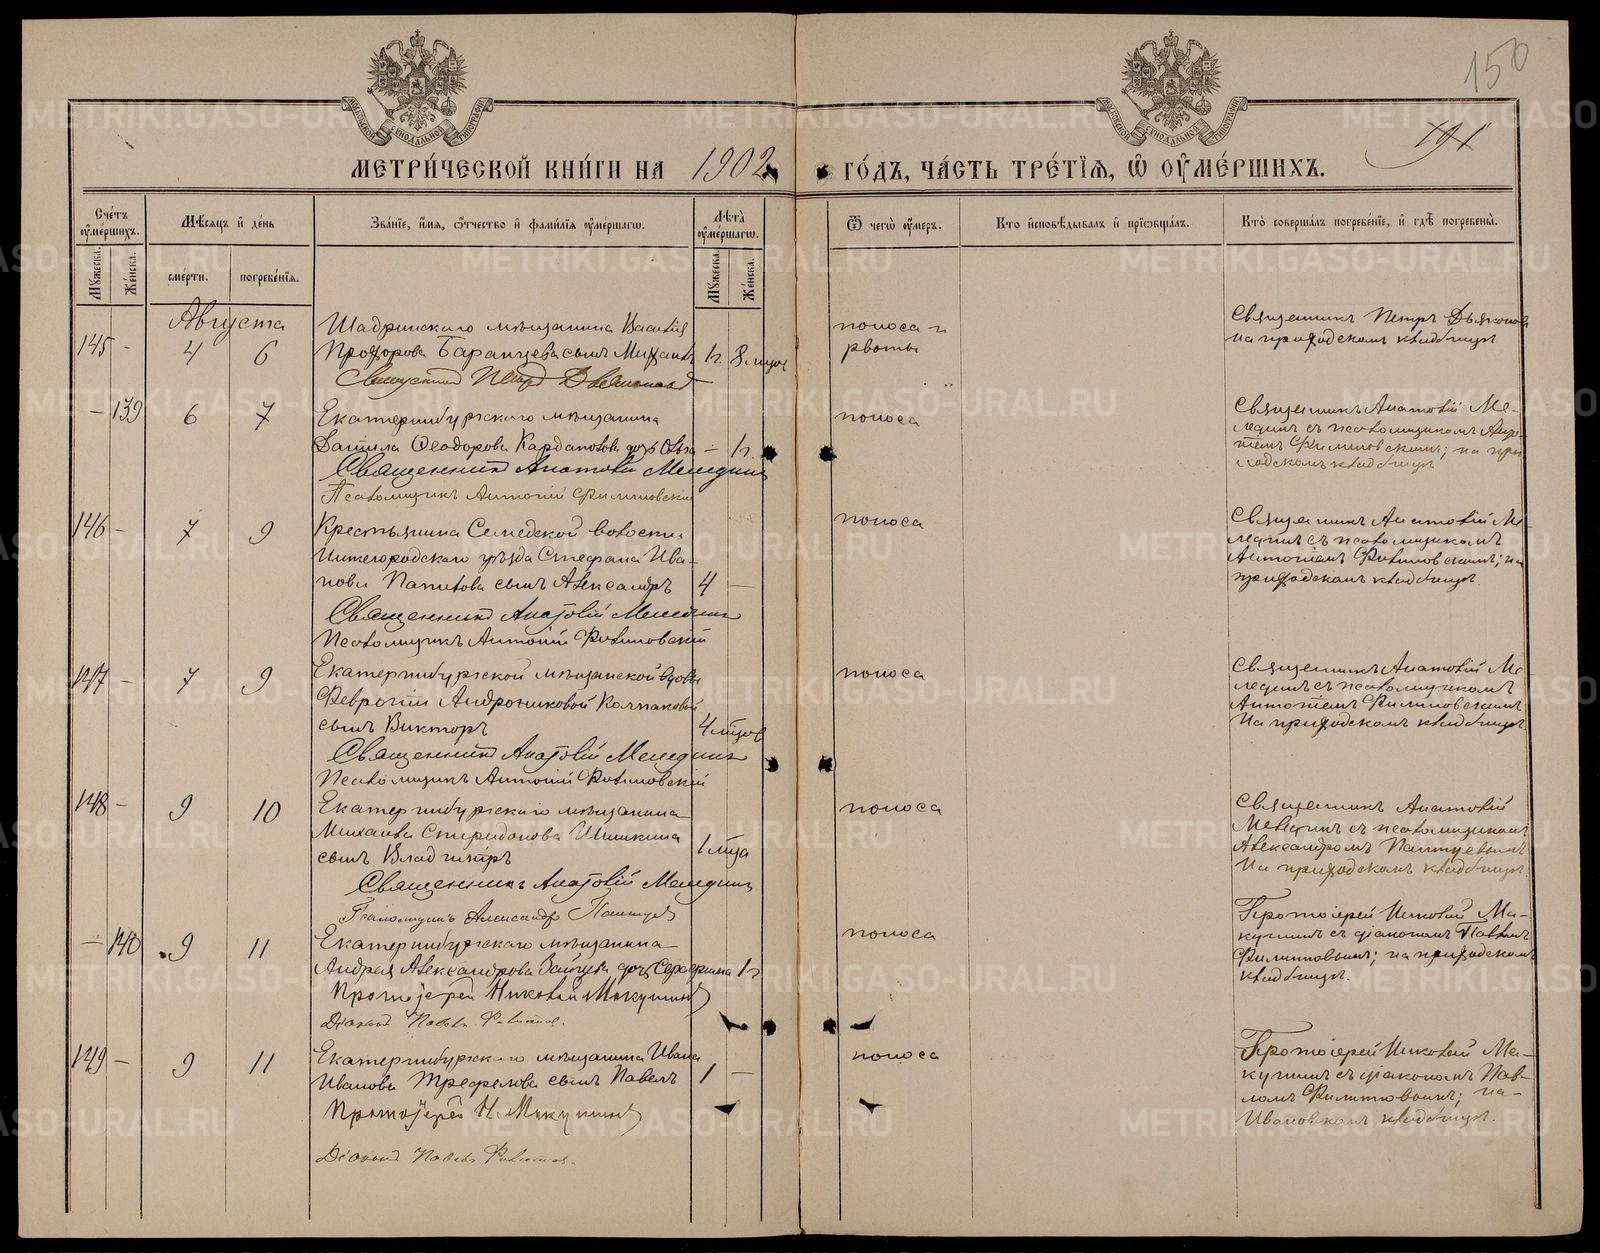 150
191
МЕТРИ́ЧЕСКОЙ КНИ́ГИ НА 1902 ГО́ДЪ, ЧА́СТЬ ТРЕ́ТІЯ, Ѿ ОУ҆МЕ́РШИХЪ.
Сче́тъ оу҆ме́ршихъ.
Мꙋ́жеска.
Же́нска.
Мѣ́сяцъ и҆ де́нь
сме́рти.
погребе́нія.
Зва́ніе, и҆́мя, ѻ҆́тчество и҆ фами́лія оу҆ме́ршагѡ.
Лѣ́та оу҆ме́ршагѡ.
Мꙋ́жеска.
Же́нска.
Ѿ чегѡ̀ оу҆́меръ.
Кто̀ и҆сповѣ́дывалъ и҆ прїѡбща́лъ.
Кто̀ соверша́лъ погребе́ніе, и҆ гдѣ̀ погребены̀.
Августа
145 - 4 6
Шадринскаго мѣщанина Василія
Прохорова Баранцева сынъ Михаилъ 1 г. 8 мцов
Священникъ Петръ Дьяконовъ
поноса и
рвоты
Священникъ Петръ Дьяконовъ
на приходскомъ кладбищѣ
- 139 6 7
Екатеринбургскаго мѣщанина
Даніила Ѳеодорова дочь Ольга - 1 г.
Священникъ Анатолій Мелединъ
Псаломщикъ Антоній Филиповскій
поноса
Священникъ Анатолій Ме-
лединъ съ псаломщикомъ Анто-
ніемъ Филиповскимъ; на при-
ходскомъ кладбищѣ
146 - 7 9
Крестьянина волости
Нижегородскаго уѣзда Стефана Ива-
нова сынъ Александръ 4 -
Священникъ Анатолій Мелединъ
Псаломщикъ Антоній Филиповскій
поноса
Священникъ Анатолій Ме-
лединъ съ псаломщикомъ
Антоніемъ Филиповскимъ; на
приходскомъ кладбищѣ.
147 - 7 9
Екатеринбургской мѣщанской вдовы
Февроніи Андрониковой Колпаковой
сынъ Викторъ 4 мцов
Священникъ Анатолій Мелединъ
Псаломщикъ Антоній Филиповскій
поноса
Священникъ Анатолій Ме-
лединъ съ псаломщикомъ
Антоніемъ Филиповскимъ
На приходскомъ кладбищѣ.
148 - 9 10
Екатеринбургскаго мѣщанина
Михаила Спиридонова Шишкина
сынъ Владиміръ 1 мца
Священникъ Анатолій Мелединъ
Псаломщикъ Александръ
поноса
Священникъ Анатолій
Мелединъ съ псаломщикомъ
Александромъ
На приходскомъ кладбищѣ.
- 140 9 11
Екатеринбургскаго мѣщанина
Андрея Александрова Зайцева дочь Серафима 1 г
Протоіерей Николай Макушинъ
Діаконъ Павелъ
поноса
Протоіерей Николай Ма-
кушинъ съ діакономъ Павломъ
на приходскомъ
кладбищѣ.
149 - 9 11
Екатеринбургскаго мѣщанина Ивана
Иванова Трефелова сынъ Павелъ 1 -
Протоіерей Н. Макушинъ
Діаконъ Павелъ
поноса
Протоіерей Николай Ма-
кушинъ съ діакономъ Пав-
ломъ на
Ивановскомъ кладбищѣ.
METRIKI.GASO-URAL.RU